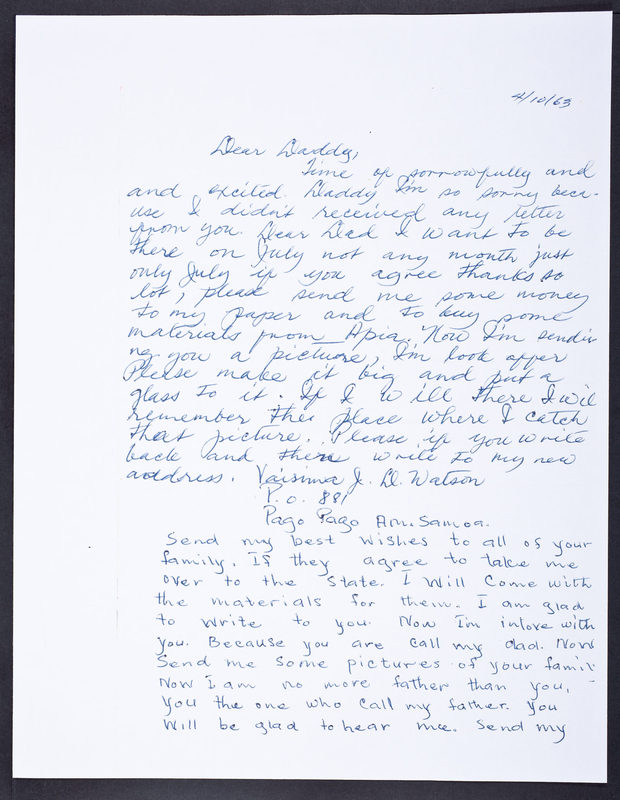 4/10/63
Dear Daddy,
Time of sorrowfully and
and excited. Daddy I'm so sorry beca-
use I didn't received any letter
from you. Dear Dad I want to be
there on July not any month just
only July if you agree thanks so
lot, please send me some money
to my paper and to buy some
materials from Apia. Now I'm sendi
ng you a picture, I'm look offer
Please make it big and put a
glass to it. If I will there I will
remember the place where I catch
that picture. Please if you write
back and there write to my new
address. Vaisima J. D. Watson
P.O. 881
Pago Pago Am. Samoa.
Send my best wishes to all of your
family. If they agree to take me
over to the State. I will come with
the materials for them. I am glad
to write to you. Now I'm inlove with
you. Because you are call my dad. Now
Send me some pictures of your famil
Now I am no more father than you,
you the one who call my father. you
will be glad to hear me. Send my